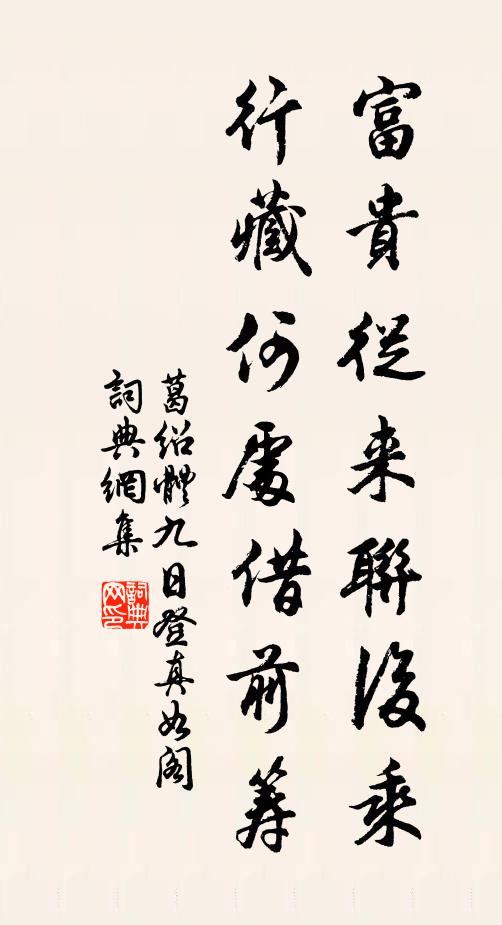 富貴從来聯後乘
行藏何處借前籌
葛紹體九日登真如阁
詞典網集
詞典
网印